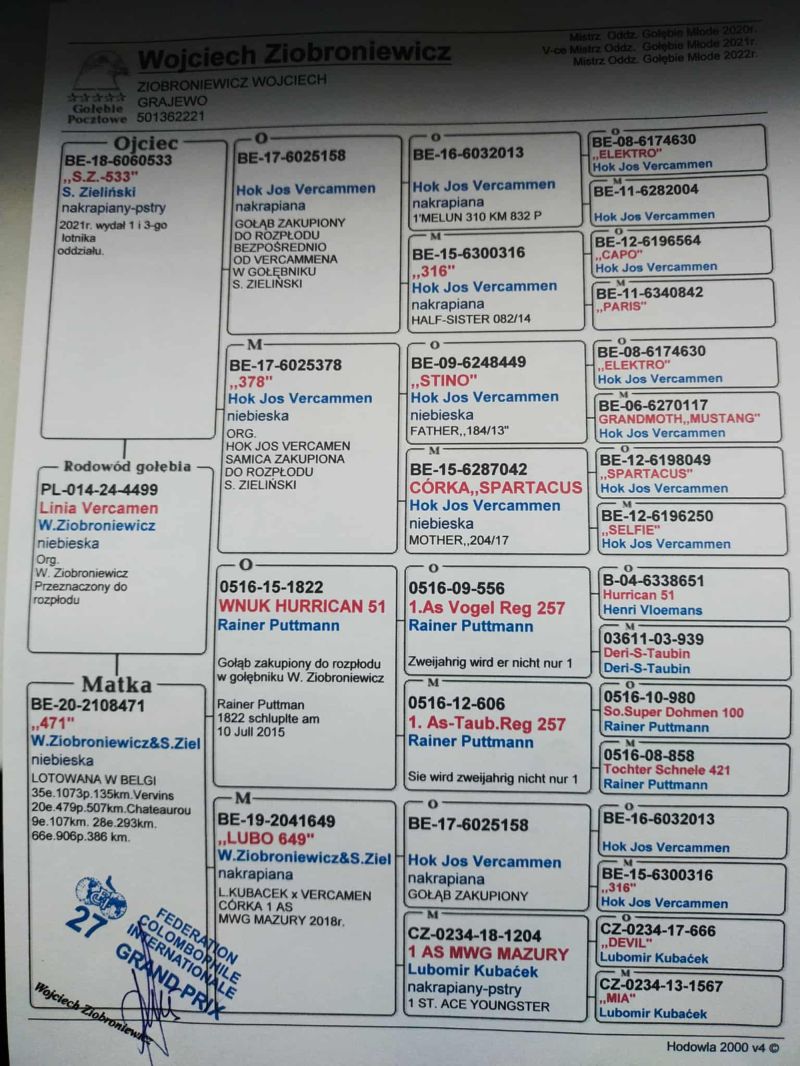 Wojciech Ziobroniewicz
ZIOBRONIEWICZ WOJCIECH
GRAJEWO
501362221
Gołębie
Pocztowe
Mistrz Oddz. Gołębie Młode 2020r.
V-ce Mistrz Oddz. Gołębie Młode 2021r.
Mistrz Oddz. Gołębie Młode 2022r.
Ojciec
BE-18-6060533
„S.Z.-533"
S. Zieliński
nakrapiany-pstry
2021r. wydał 1 i 3-go
lotnika
oddziału.
Rodowód gołębia
PL-014-24-4499
Linia Vercamen
W.Ziobroniewicz
niebieska
Org.
W. Ziobroniewicz
Przeznaczony do
rozpłodu
Matka
BE-20-2108471
„471"
W.Ziobroniewicz&S.Ziel
niebieska
LOTOWANA W BELGI
35e.1073p.135km.Vervins
20e.479p.507km.Chateaurou
9e.107km. 28e.293km.
66e.906p.386 km.
O
BE-17-6025158
Hok Jos Vercammen
nakrapiana
GOŁĄB ZAKUPIONY
DO ROZPŁODU
BEZPOŚREDNIO
OD VERCAMMENA
W GOŁĘBNIKU
S. ZIELIŃSKI
M
BE-17-6025378
,,378"
Hok Jos Vercammen
niebieska
ORG.
HOK JOS VERCAMEN
SAMICA ZAKUPIONA
DO ROZPŁODU
S. ZIELIŃSKI
O
0516-15-1822
WNUK HURRICAN 51
Rainer Puttmann
Gołąb zakupiony do rozpłodu
w gołębniku W. Ziobroniewicz
Rainer Puttman
1822 schluplte am
10 Jull 2015
M
BE-19-2041649
„LUBO 649"
W.Ziobroniewicz&S.Ziel
nakrapiana
L.KUBACEK x VERCAMEN
CÓRKA 1 AS
MWG MAZURY 2018r.
O
BE-16-6032013
Hok Jos Vercammen
nakrapiana
1'MELUN 310 KM 832 P
M
BE-15-6300316
,,316"
Hok Jos Vercammen
nakrapiana
HALF-SISTER 082/14
O
BE-09-6248449
,,STINO"
Hok Jos Vercammen
niebieska
FATHER,,184/13"
M
BE-15-6287042
CÓRKA,,SPARTACUS
Hok Jos Vercammen
niebieska
MOTHER,,204/17
O
0516-09-556
1.As Vogel Reg 257
Rainer Puttmann
Zweijahrig wird er nicht nur 1
M
0516-12-606
1. As-Taub.Reg 257
Rainer Puttmann
Sie wird zweijahrig nicht nur 1
O
BE-17-6025158
Hok Jos Vercammen
nakrapiana
GOŁĄB ZAKUPIONY
M
CZ-0234-18-1204
1 AS MWG MAZURY
Lubomir Kubaćek
nakrapiany-pstry
1 ST. ACE YOUNGSTER
O
BE-08-6174630
,,ELEKTRO"
Hok Jos Vercammen
M
BE-11-6282004
Hok Jos Vercammen
O
BE-12-6196564
,,CAPO"
Hok Jos Vercammen
M
BE-11-6340842
,,PARIS"
O
BE-08-6174630
,,ELEKTRO"
Hok Jos Vercammen
M
BE-06-6270117
GRANDMOTH,,MUSTANG"
Hok Jos Vercammen
O
BE-12-6198049
,,SPARTACUS"
Hok Jos Vercammen
M
BE-12-6196250
,,SELFIE"
Hok Jos Vercammen
O
B-04-6338651
Hurrican 51
Henri Vloemans
M
03611-03-939
Deri-S-Taubin
Deri-S-Taubin
O
0516-10-980
So.Super Dohmen 100
Rainer Puttmann
M
0516-08-858
Tochter Schnele 421
Rainer Puttmann
O
BE-16-6032013
Hok Jos Vercammen
M
BE-15-6300316
,,316"
Hok Jos Vercammen
O
CZ-0234-17-666
,,DEVIL"
Lubomir Kubaćek
M
CZ-0234-13-1567
„MIA"
Lubomir Kubaćek
27
FEDERATION
COLOMBOPHILE
INTERNATIONALE
GRAND-PRIX
Wojciech Ziobroniewicz
Hodowla 2000 v4 ©